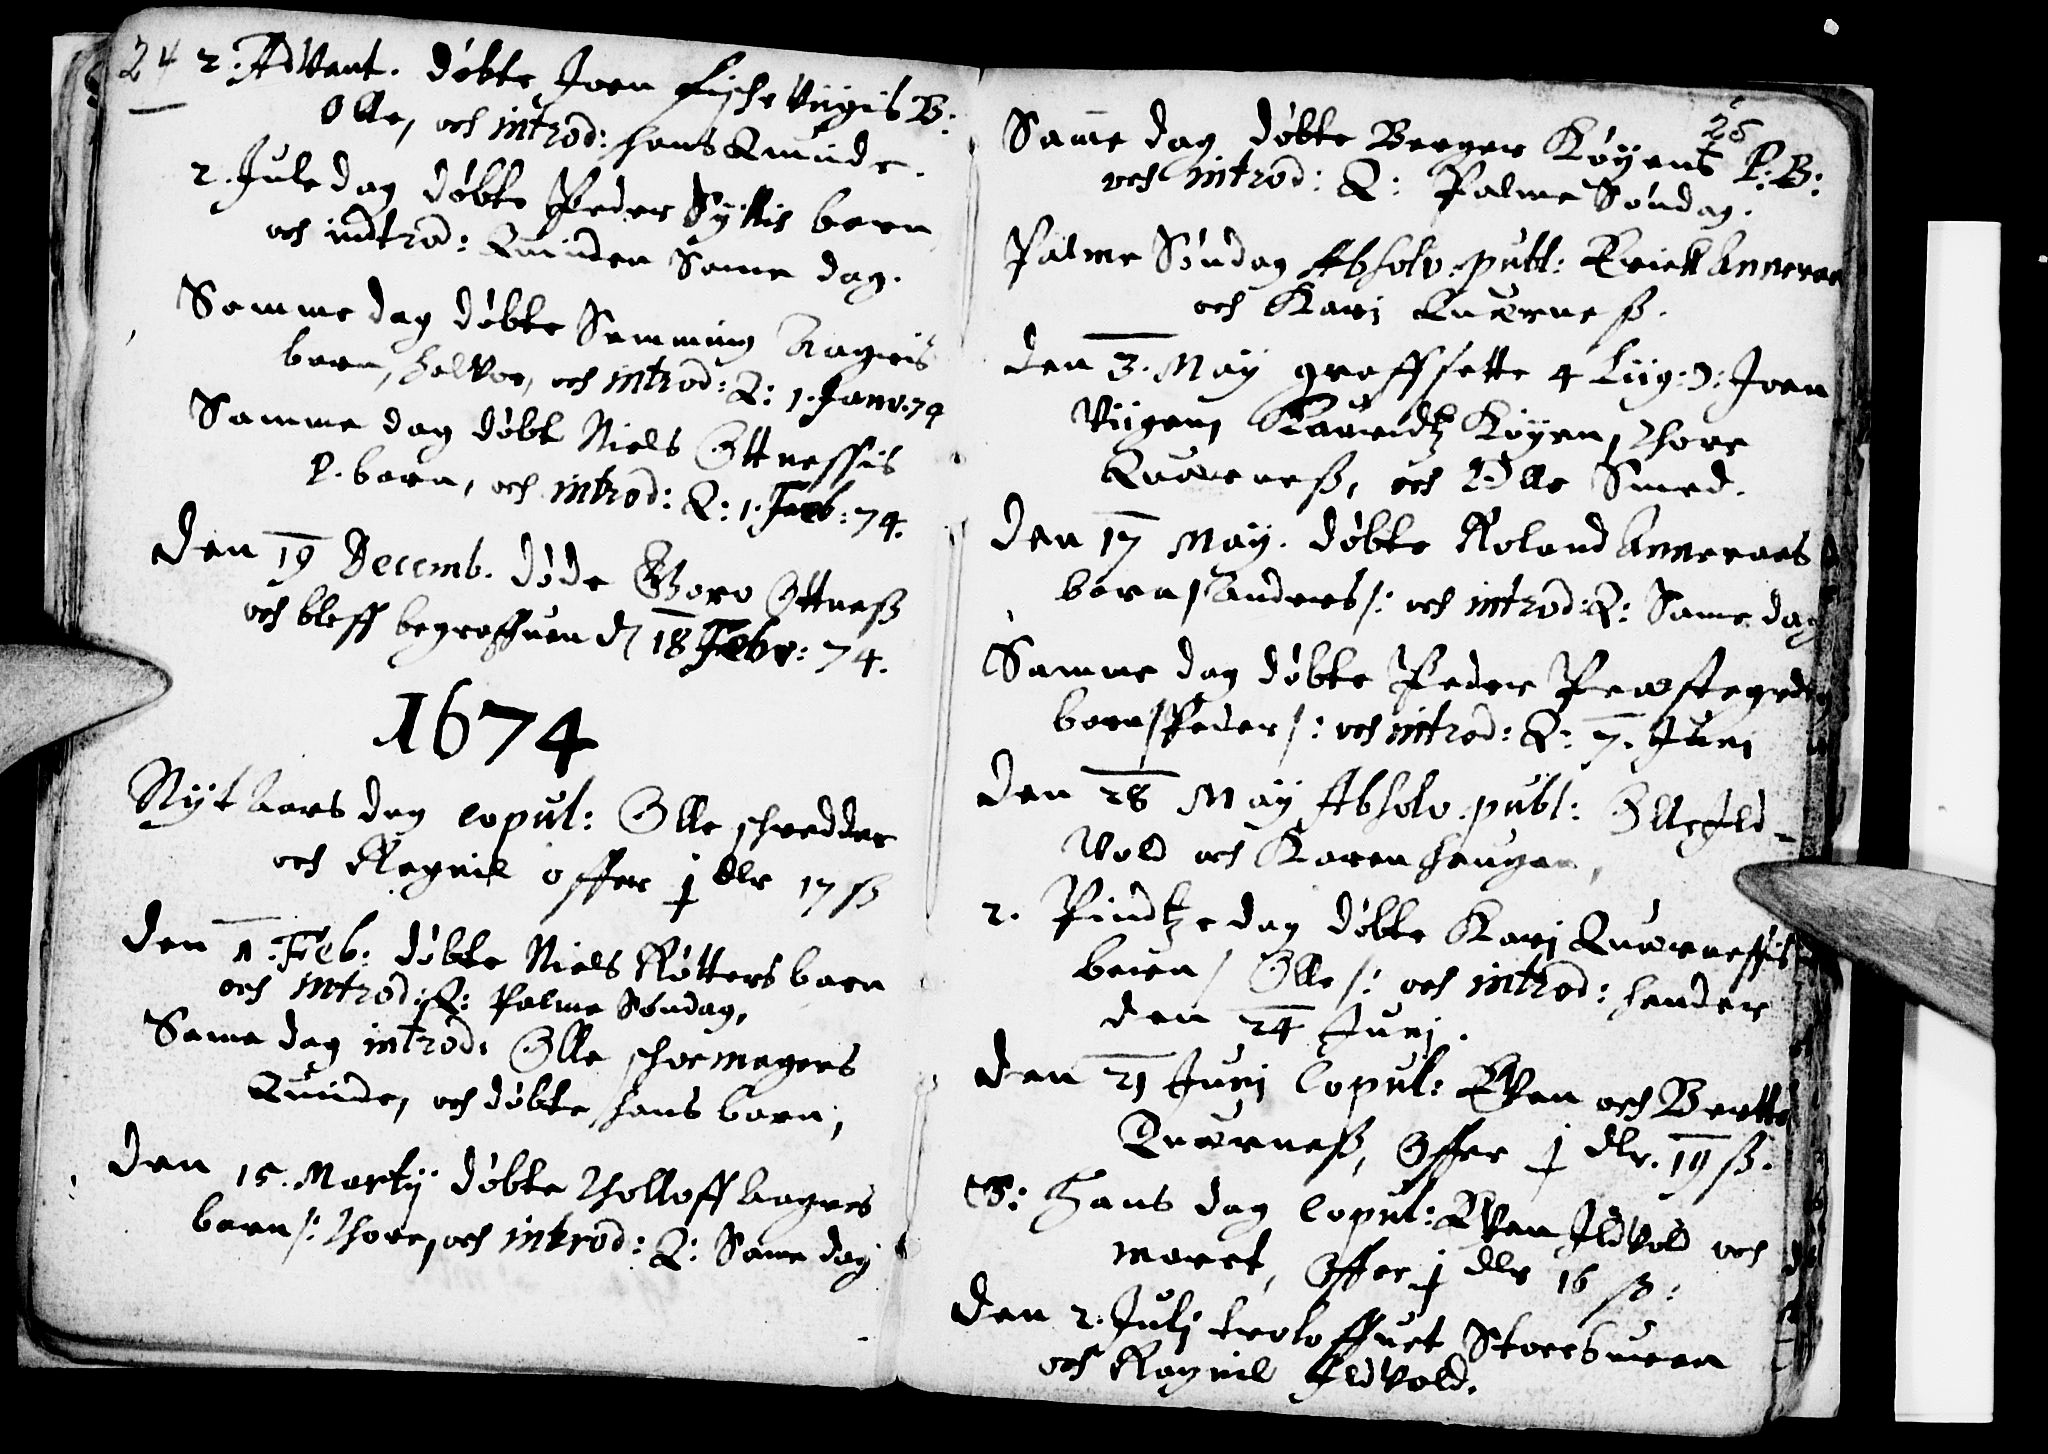 24
2. Advent. døbte Joen Fische Viigis B:
Olle, och introd: hans Quinde.
2. Jule dag døbte Peder Syllis barn
och indtrod: Quinden Same dag.
Samme dag døbte Semming Aagris
barn, Halvor, och introd: Q: 1. Janv. 74
Samme dag døbt Niels Ottnessis
P. barn, och introd: Q: 1. Feb: 74.
Den 19 Decemb. døde Goro Ottneß
och bleff begraffuen d 18 Febr: 74.
1674
Nyt Aars dag copul: Olle schredder
och Ragnil offer j dlr 17 ß
Den 1. Feb: døbte Niels Røtters barn
och introd: Q: Palme Søndag,
Same dag introd: Olle schoemagers
Quinde, och døbte hans barn,
Den 15. Martij døbte Tholloff Aagres
barn /: Thore, och introd: Q: Same dag
25
Same dag døbte Berger Køyens P: B:
och introd: Q: Palme Søndag.
Palme Søndag Absolv. publ: Erick Anneraa
och Kari Quærneß.
Den 3. May graffsette 4 Liig: Joen
Viigen, Lauridtz Køyen, Thore
Quærneß, och Olle Smed.
Den 17 May. døbte Roland Anneraaes
barn / Anders /: och introd: Q: Same dag
Samme dag døbte Peder Præstegrds
barn / Peder /: och introd: Q: 7. Junj
Den 28 May Absolv. publ: Olle Ild-
vold och Karen Haugen,
2. Pindtze dag døbte Karj Quærnessis
barn / Olle /: och introd: hender
den 24 Junj.
Den 21 Junj Copul: Even och Beritte
Quærneß, Offer j dlr. 19 ß.
S: Hans dag Copul: Even Ildvold och
Maret, Offer j dlr 16 ß:
Den 2. Julj troloffuet Stoer Svæen
och Ragnil Ildvold.